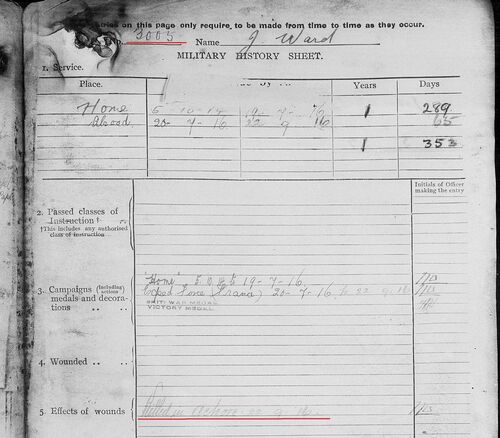 tries on this page only require, to be made from time to time as they occur.
No. 3005 Name J Ward
MILITARY HISTORY SHEET.
1. Service.
Place. Years Days
Home 19- 7- 16 1 289
Abroad 20- 7- 16 22 9 16 65
1 353
Initials of Officer
making the entry
2. Passed classes of
Instruction†
†This includes any authorised
class of instruction
3. Campaigns (including
actions)
medals and decora-
tions .. ..
"Home" 19-7-16
Exped Force (France) 20-7-16 to 22 9 16
BRIT: WAR MEDAL
VICTORY MEDAL
4. Wounded .. ..
5. Effects of wounds Killed in Action 22 9 16